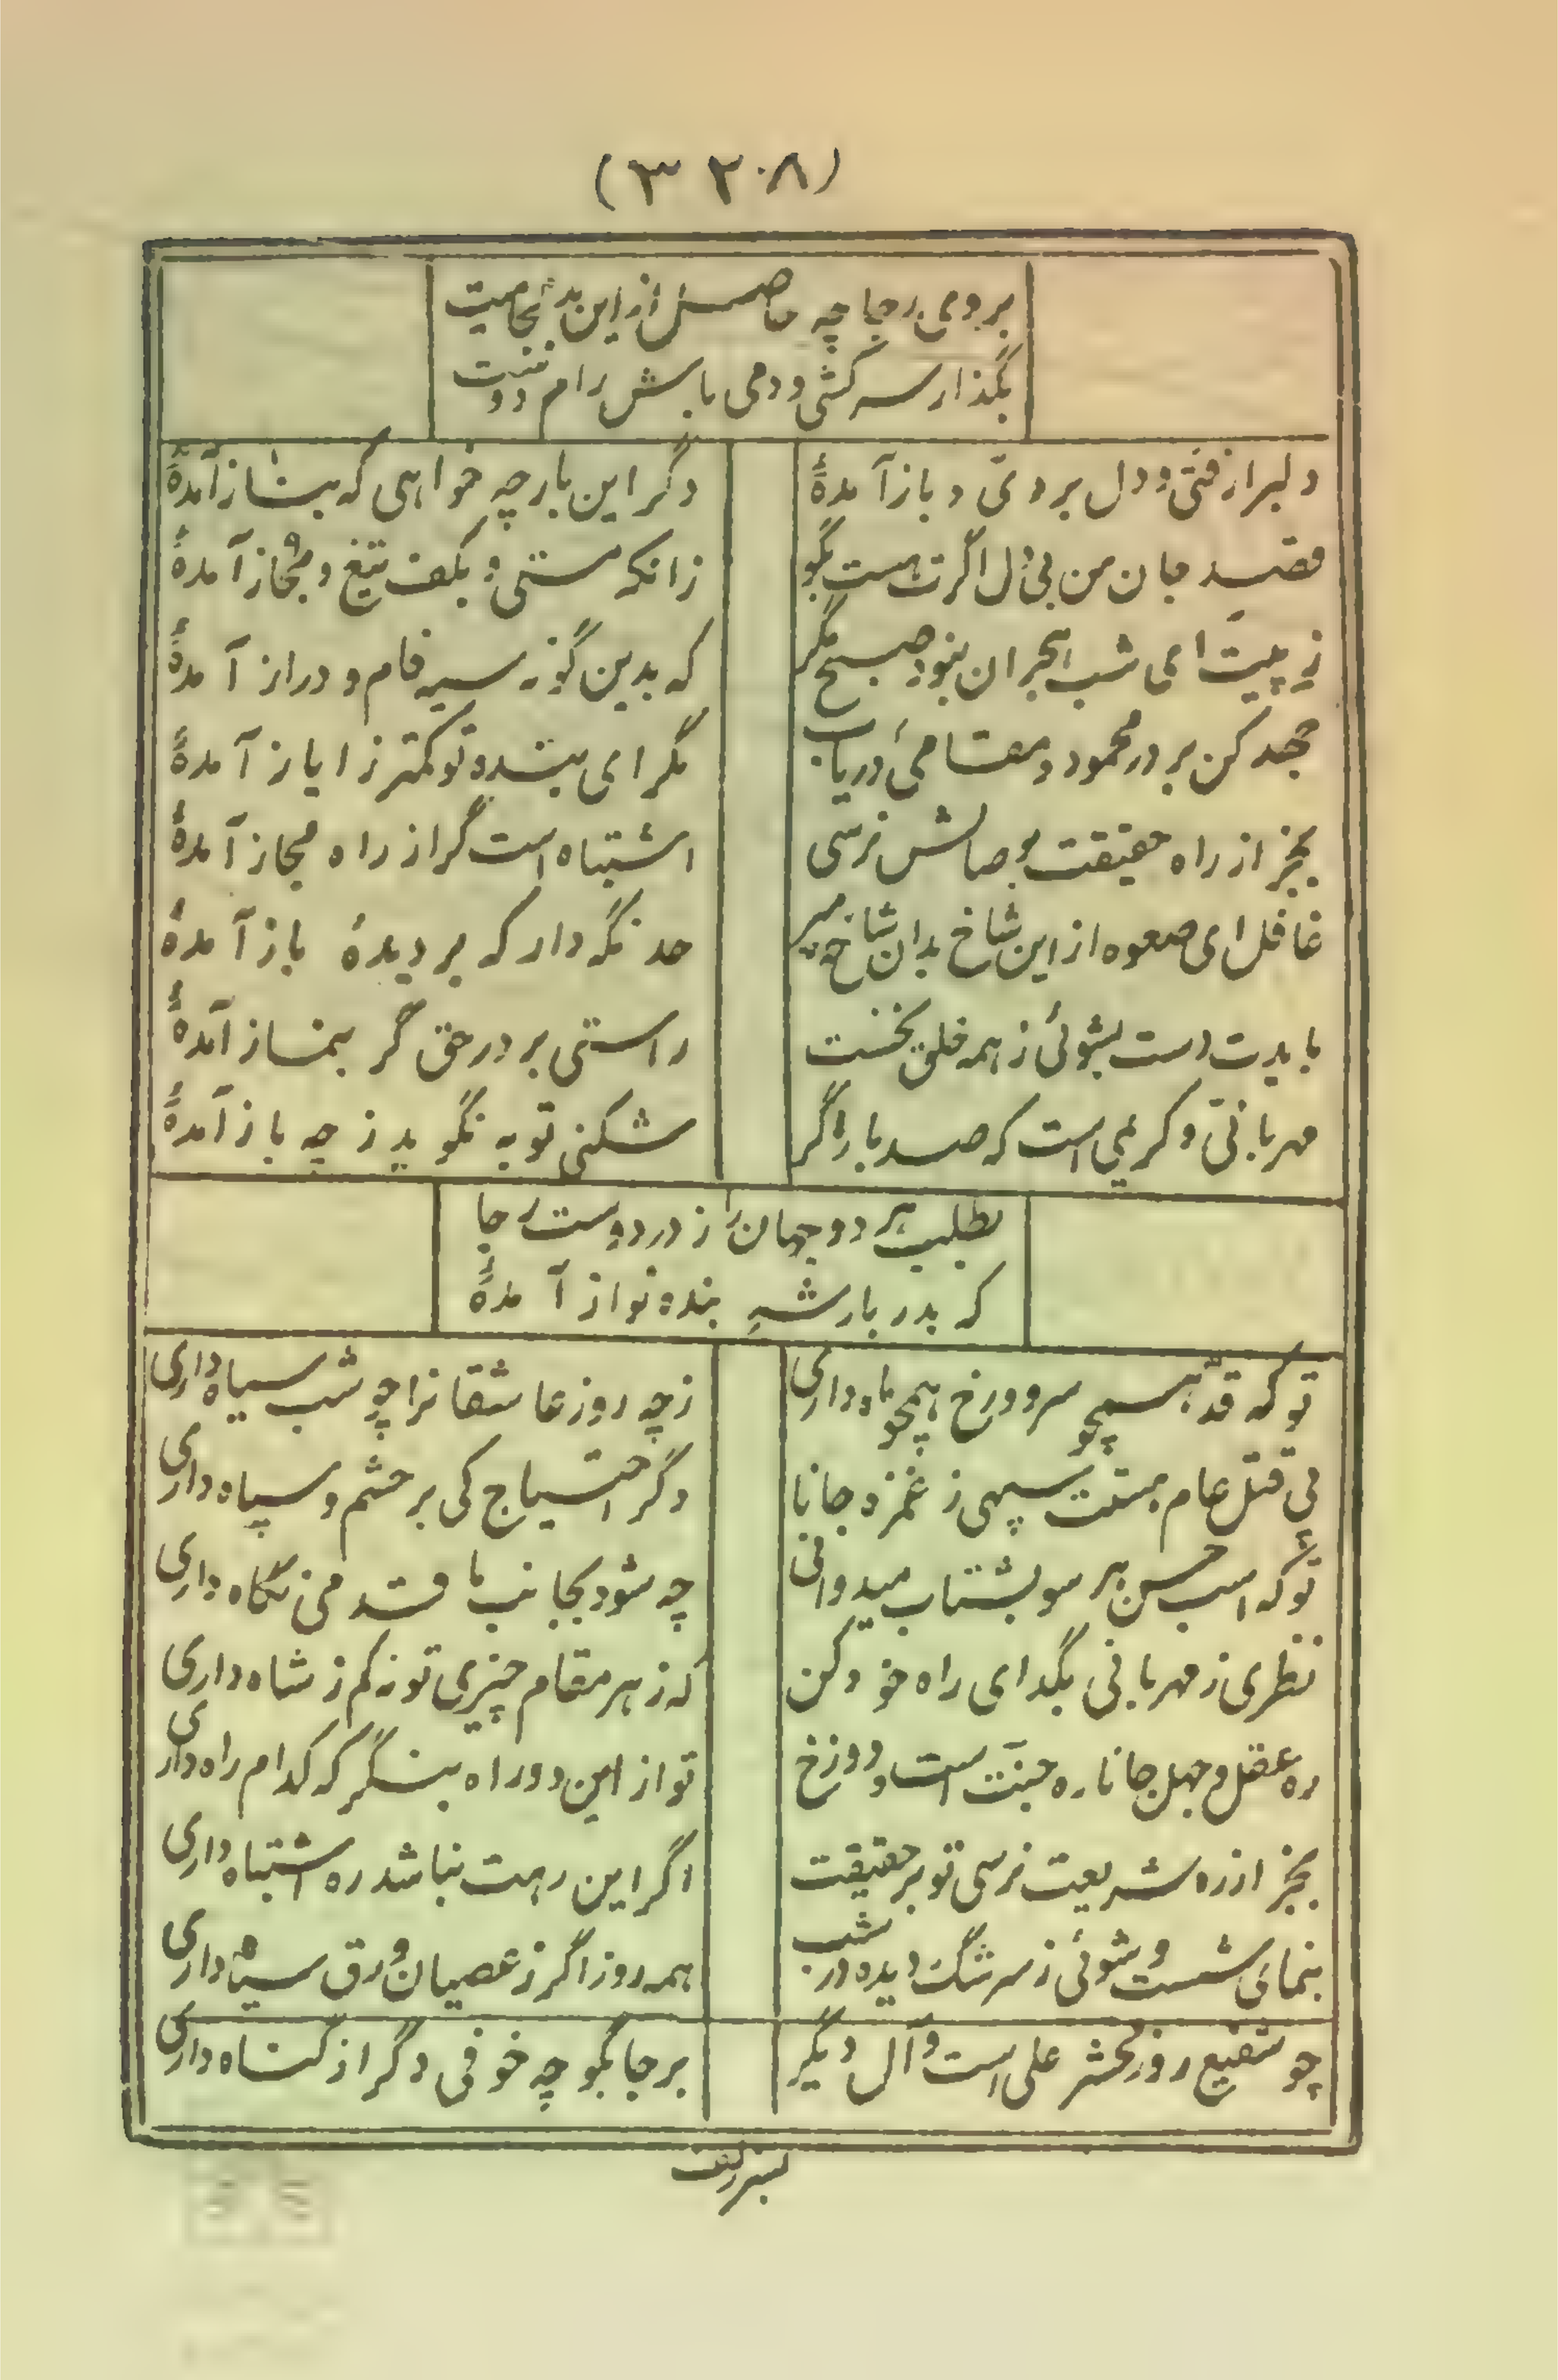 (۳۲۰۸)
بردی رجا چه حاصل ازین بد
بگذار سرکشی و دمی باش رام دوست
دلبرا رفتی و دل بردی و باز آمدهٔ
دگر این بار چه خواهی که بناز آمدهٔ
قصد جان من بی‌دل اگرت هست بگو
زانکه مستی و بکف تیغ و آمدهٔ
زپیت ای شب هجران نبود صبح مگر
که بدین گونه سیه فام و دراز آمدهٔ
جهد کن بر در محمود و مقامی دریاب
مگر ای بنده تو کمتر ز ایاز آمدهٔ
بجز از راه حقیقت بوصالش نرسی
اشتباه است گر از راه مجاز آمدهٔ
غافل ای صعوه از این شاخ بدان شاخ مپر
حد نگه دار که بر دیدهٔ باز آمدهٔ
بایدت دست بشوئی ز همه خلق نخست
راستی بر در حق گر بنماز آمدهٔ
مهربانی و کریمی است که صد بار اگر
شکنی توبه نگوید ز چه باز آمدهٔ
بطلب هر دو جهان را ز در دوست رجا
که بدربار شه بنده نواز آمدهٔ
تو که قد همچو سرو و رخ همچو ماه داری
ز چه روز عاشقانرا چو شب سیاه داری
پی قتل عام هستت سپهی ز غمزه جانا
دگر احتیاج کی بر حشم و سپاه داری
تو که اسب حسن هر سو بشتاب میدوانی
چه شود بجانب ما قدمی نگاه داری
نظری ز مهربانی بگدای راه خود کن
که ز هر مقام چیزی تو نه کم ز شاه داری
ره عقل و جهل جانا ره جنّت است و دوزخ
تو از این دو راه بنگر که کدام راه داری
بجز از ره شریعت نرسی تو بر حقیقت
اگر این رهت نباشد ره اشتباه داری
بنمای شست و شوئی ز سرشگ دیده در شب
همه روز اگر ز عصیان ورق سیاه داری
چو شفیع روز محشر علی است و آل دیگر
برجا بگو چه خوفی دگر از گناه داری
بسر زلف